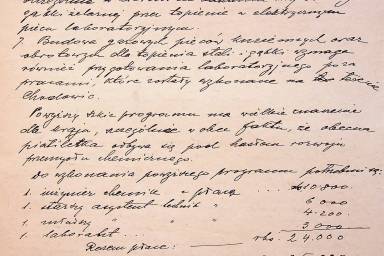 gąbki żelaznej przez topienie w elektrycznym
piecu laboratoryjnym.
7. Budowa gazowych pieców kuziennych oraz
obrotowych dla topienia stali i gąbki wymaga
również przygotowania laboratoryjnego poza
pracami, które zostały wykonane na terenie
Chodowic.
Powyższy program ma wielkie znaczenie
dla kraju, szczególnie wobec faktu, że obecna
piatiletka odbywa się pod hasłem rozwoju
przemysłu chemicznego.
Do wykonania powyższego programu potrzebni są:
1. inżynier chemik z płacą 10.000
1. starszy asystent technik " 6000
1. młodszy " " " 4.200
1. laborant 3.000
Razem płace: rbs. 24.000